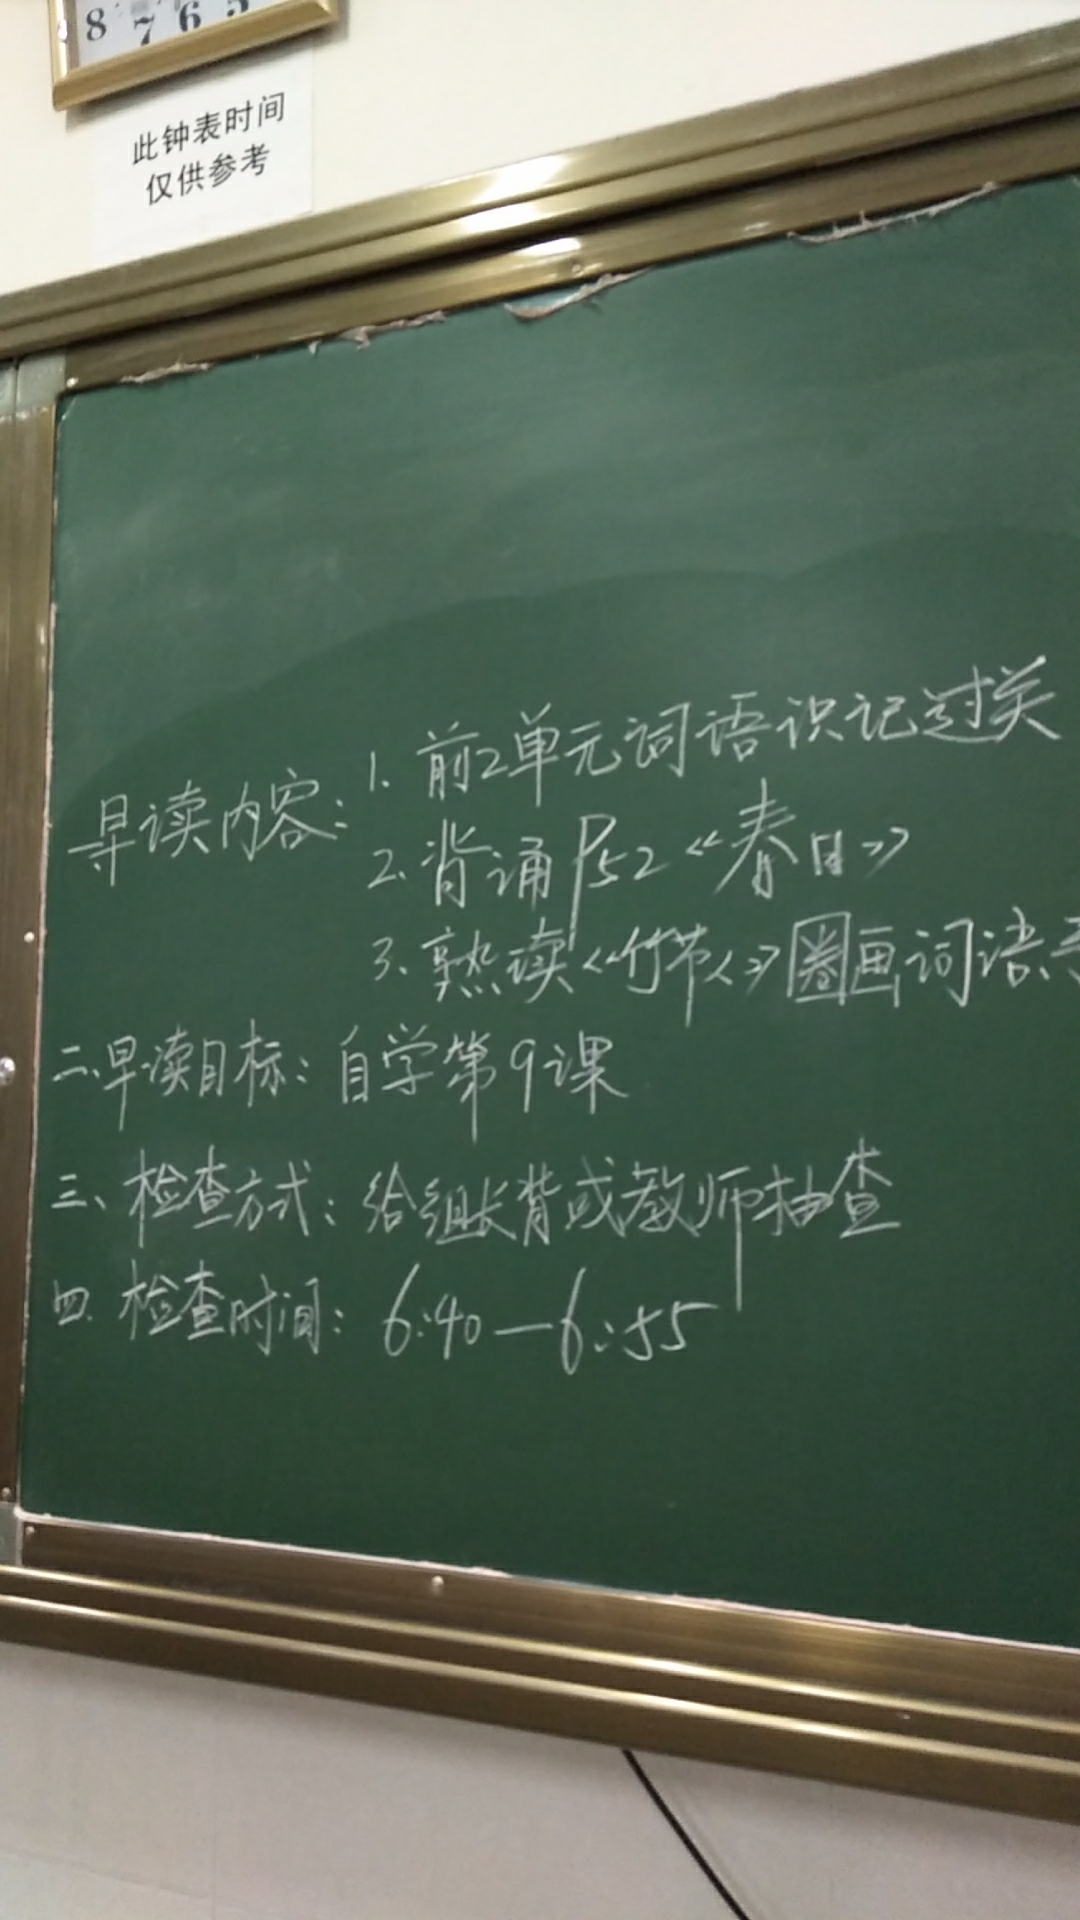 8 7 6 5
此钟表时间
仅供参考
早读内容: 1. 前2单元词语识记过关
2. 背诵P52《春日》
3. 熟读《竹节人》圈画词语
二、早读目标: 自学第9课
三、检查方式: 给组长背或教师抽查
四. 检查时间: 6:40—6:55